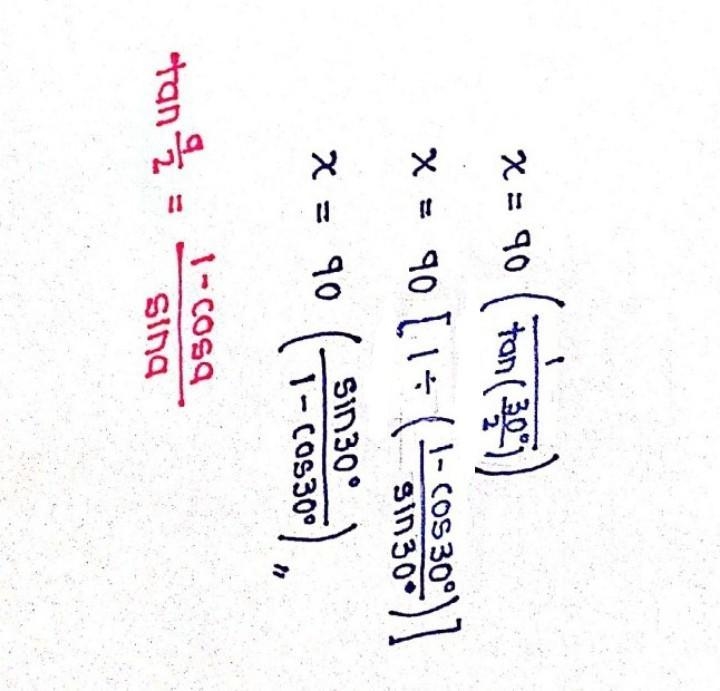 x = 90 (1/tan(30°/2))
x = 90 [1 ÷ (1-cos30°/sin30°)]
x = 90 (sin30°/1-cos30°)"
tan q/2 = 1-cosq/sinq